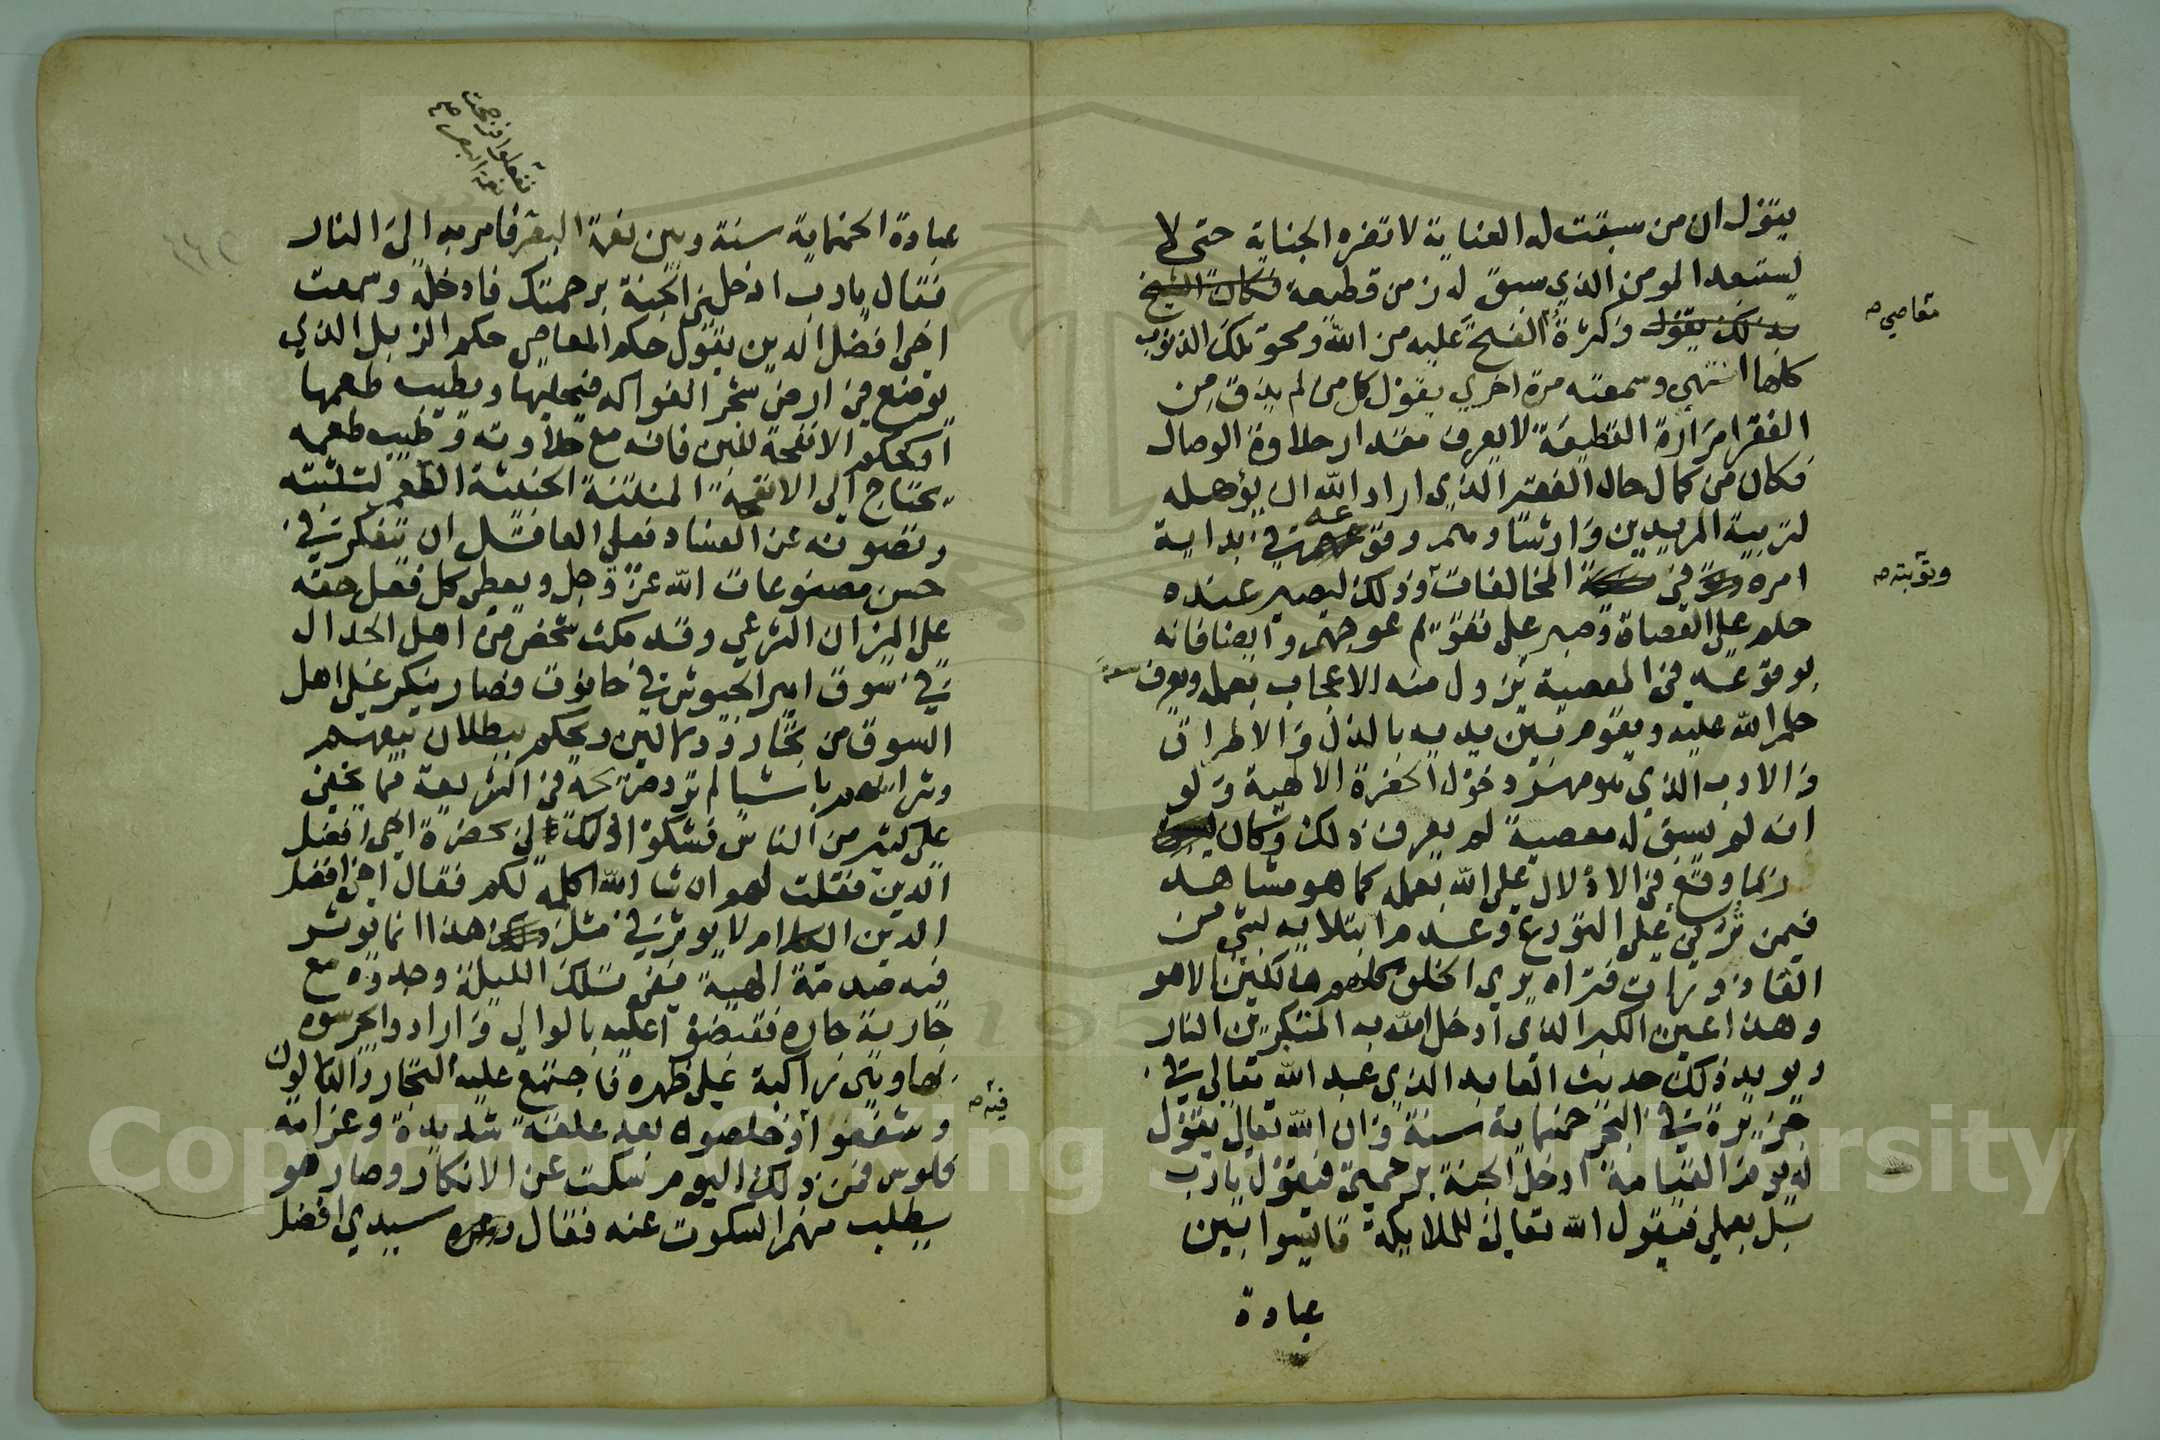 يقول ان من سبقت له العناية لا تضره الجناية حتى لا
يستبعد المومن الذي سبق له زمن قطيعة فكان الشيخ
بذلك يقول وكثرة الفتح عليه من الله ومحو تلك الذنوب
كلها انتهى وسمعته مرة اخرى يقول كل من لم يذق من
الفقرا مرارة القطيعة لا يعرف مقدار حلاوة الوصال
فكان من كمال حال الفقير الذي اراد الله ان يؤهله
لتربية المريدين وارشادهم وقوعه في بداية
امره في المخالفات وذلك ليصير عنده
حلم على العصاة وصبر على تقويم عوجهم وايضا فانه
بوقوعه في المعصية يزول منه الاعجاب بعمله ويعرف سعة
حلم الله عليه ويقوم بين يديه بالذل والاطراق
والادب الذي هو مهر دخول الحضرة الالاهية ولو
انه لم يسبق له معصية لم يعرف ذلك وكان
ربما وقع في الادلال على الله بعمله كما هو مشاهد
فيمن تربى على التورع وعدم ابتلايه بشي من
القاذورات فتراه يرى الخلق كلهم هالكين الا هو
وهذا عين الكبر الذي ادخل الله به المتكبرين النار
ويويد ذلك حديث العابد الذي عبد الله تعالى في
جزيرة في البحر خمسماية سنة وان الله تعالى يقول
له يوم القيامة ادخل الجنة برحمتي فيقول يارب
بل بعملي فيقول الله تعالى للملايكة قايسوا بين
عبادة
معاصي صح
وتوبته صح
عبادة الخمسماية سنة وبين نعمة البصر فامر به الى النار
فقال يارب ادخلني الجنة برحمتك فادخله وسمعت
اخي افضل الدين يقول حكم المعاصي حكم الزبل الذي
يوضع في ارض شجر الفواكه فيحليها ويطيب طعمها
او كحكم الانفحة للبن فانه مع حلاوته وطيب طعمه
يحتاج الى الانفحة المنتنة الخبيثة الطعم لتثبته
وتصونه عن الفساد فعلى العاقل ان يتفكر في
حسن مصنوعات الله عز وجل ويعطي كل فعل حقه
على الميزان الشرعي وقد مكث شخص من اهل الجدال
في سوق امير الجيوش في حانوت فصار ينكر على اهل
السوق من تجار ودلالين ويحكم ببطلان بيعهم
وشرايهم باشيا لم ترد صريحة في الشريعة مما يخفى
على كثير من الناس فشكوا ذلك الى بحضرة اخي افضل
الدين فقلت لهم ان شا الله اكلمه لكم فقال اخي افضل
الدين الكلام لا يوثر في مثل هذا انما يوثر
فيه صدمة الهية ففي تلك الليلة وجدوه مع
جارية جاره فقبضوا عليه بالوالي وارادوا يجرسوه
بها وهي راكبة على ظهره فاجتمع عليه التجار والدلالون
وشفعوا وخلصوه بعد علقة شديدة وغرامة
فلوس فمن ذلك اليوم سكت عن الانكار وصار هو
يطلب منهم السكوت عنه فقال سيدي افضل
فيه صح